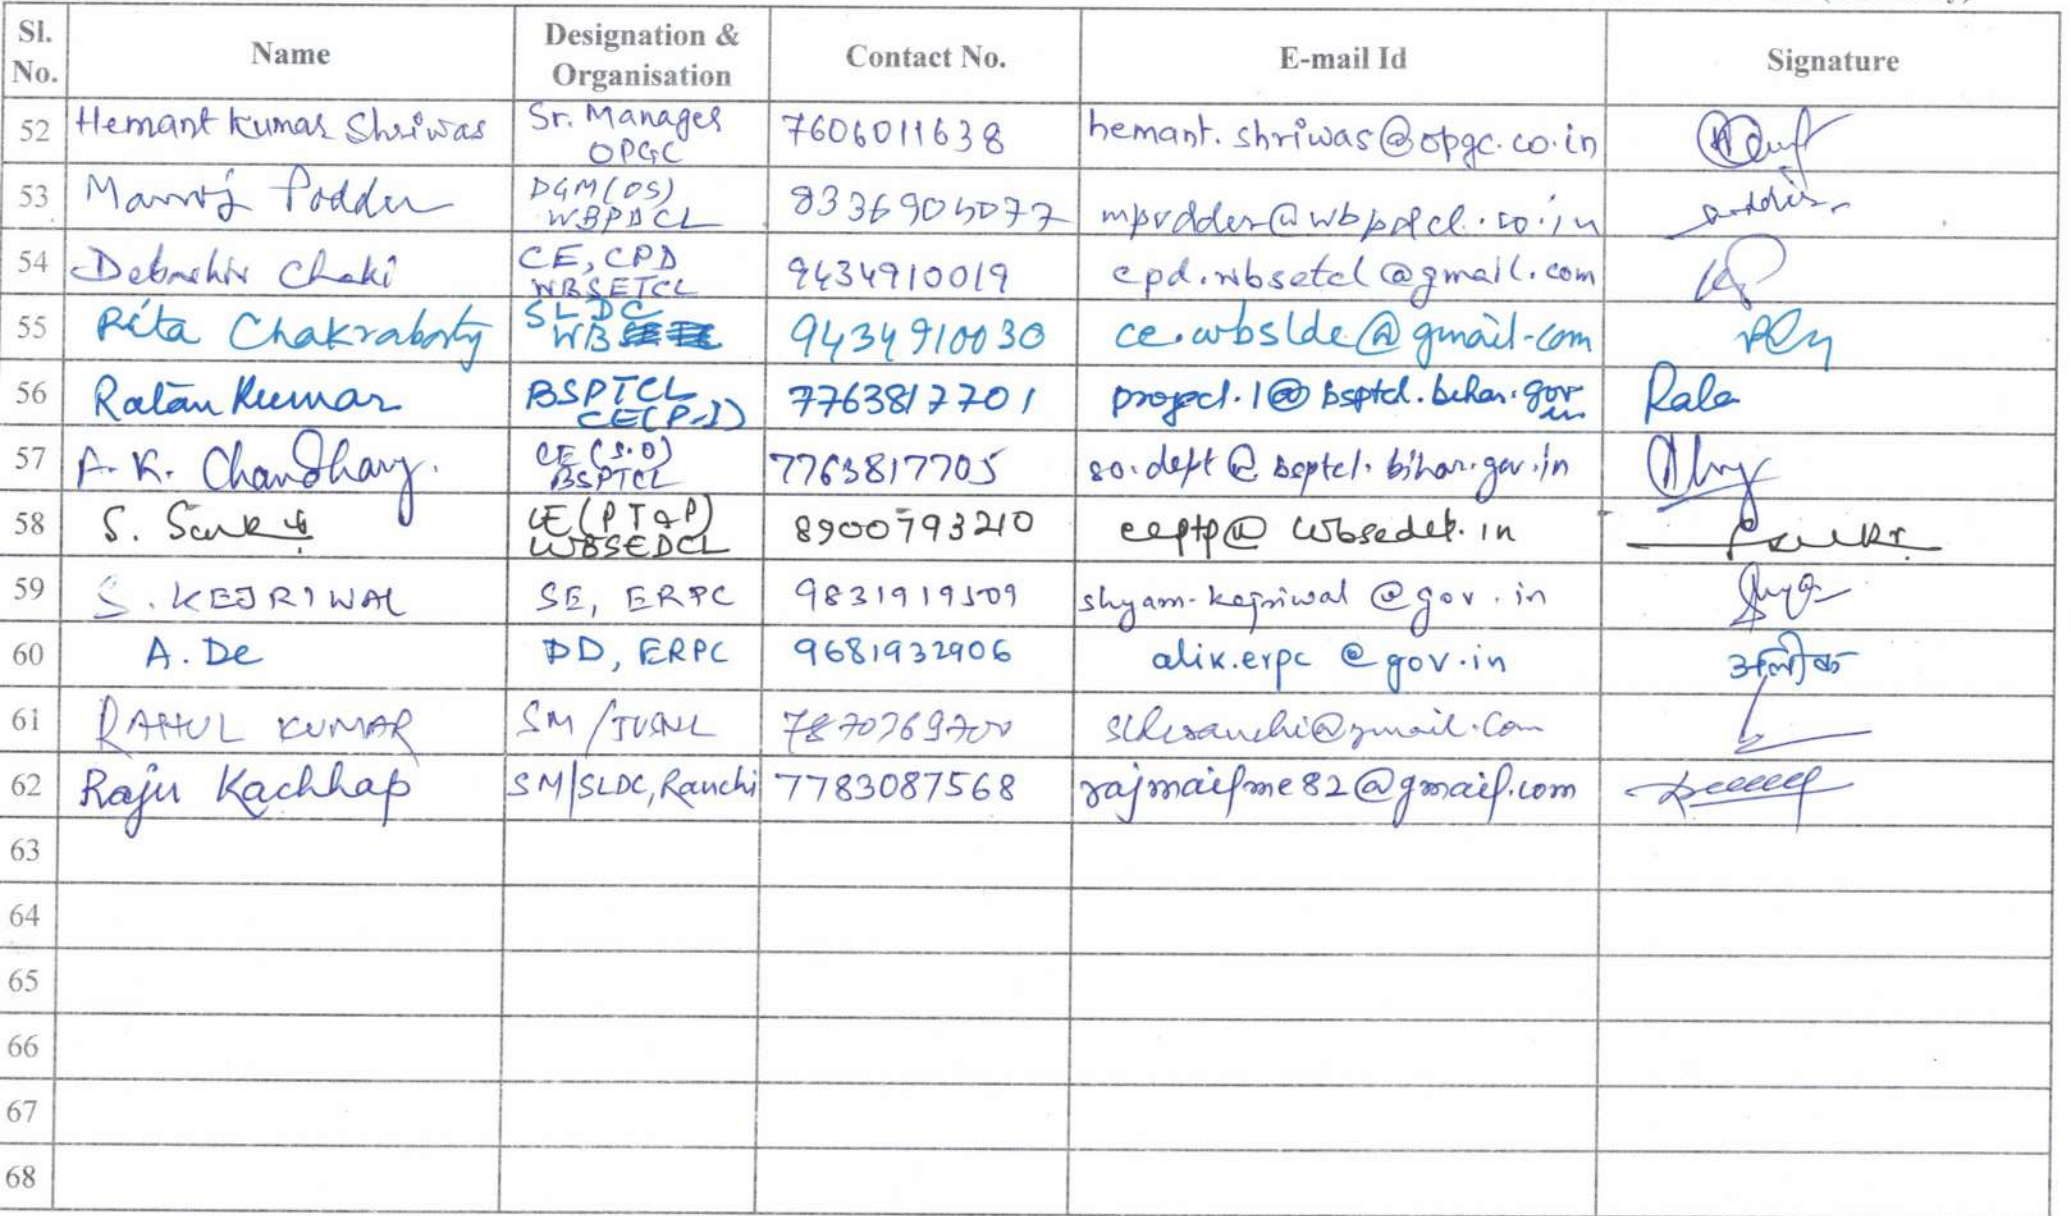 Sl. No. Name Designation & Organisation Contact No. E-mail Id Signature
52 Hemant Kumar Shriwas Sr. Manager OPGC 7606011638 hemant.shriwas@opgc.co.in
53 Manoj Poddar DGM(OS) WBPDCL 8336904077 mpoddar@wbpdcl.co.in
54 Debashis Chaki CE, CPD WBSETCL 9434910019 cpd.wbsetcl@gmail.com
55 Rita Chakraborty SLDC WB 9434910030 ce.wbsldc@gmail.com
56 Ratan Kumar BSPTCL CE(P-I) 7763817701 project.1@bsptcl.bihar.gov.in
57 A. K. Chaudhary. CE (S.O) BSPTCL 7763817705 so.dept@bsptcl.bihar.gov.in
58 S. Sarkar CE (PT&P) WBSEDCL 8900793210 ceptp@wbsedcl.in
59 S. KEJRIWAL SE, ERPC 9831919509 shyam.kejriwal@gov.in
60 A. De DD, ERPC 9681932906 alik.erpc@gov.in अलीक
61 RAHUL KUMAR SM/JUSNL 7870769700
62 Raju Kachhap SM/SLDC, Ranchi 7783087568 rajmailme82@gmail.com
63
64
65
66
67
68